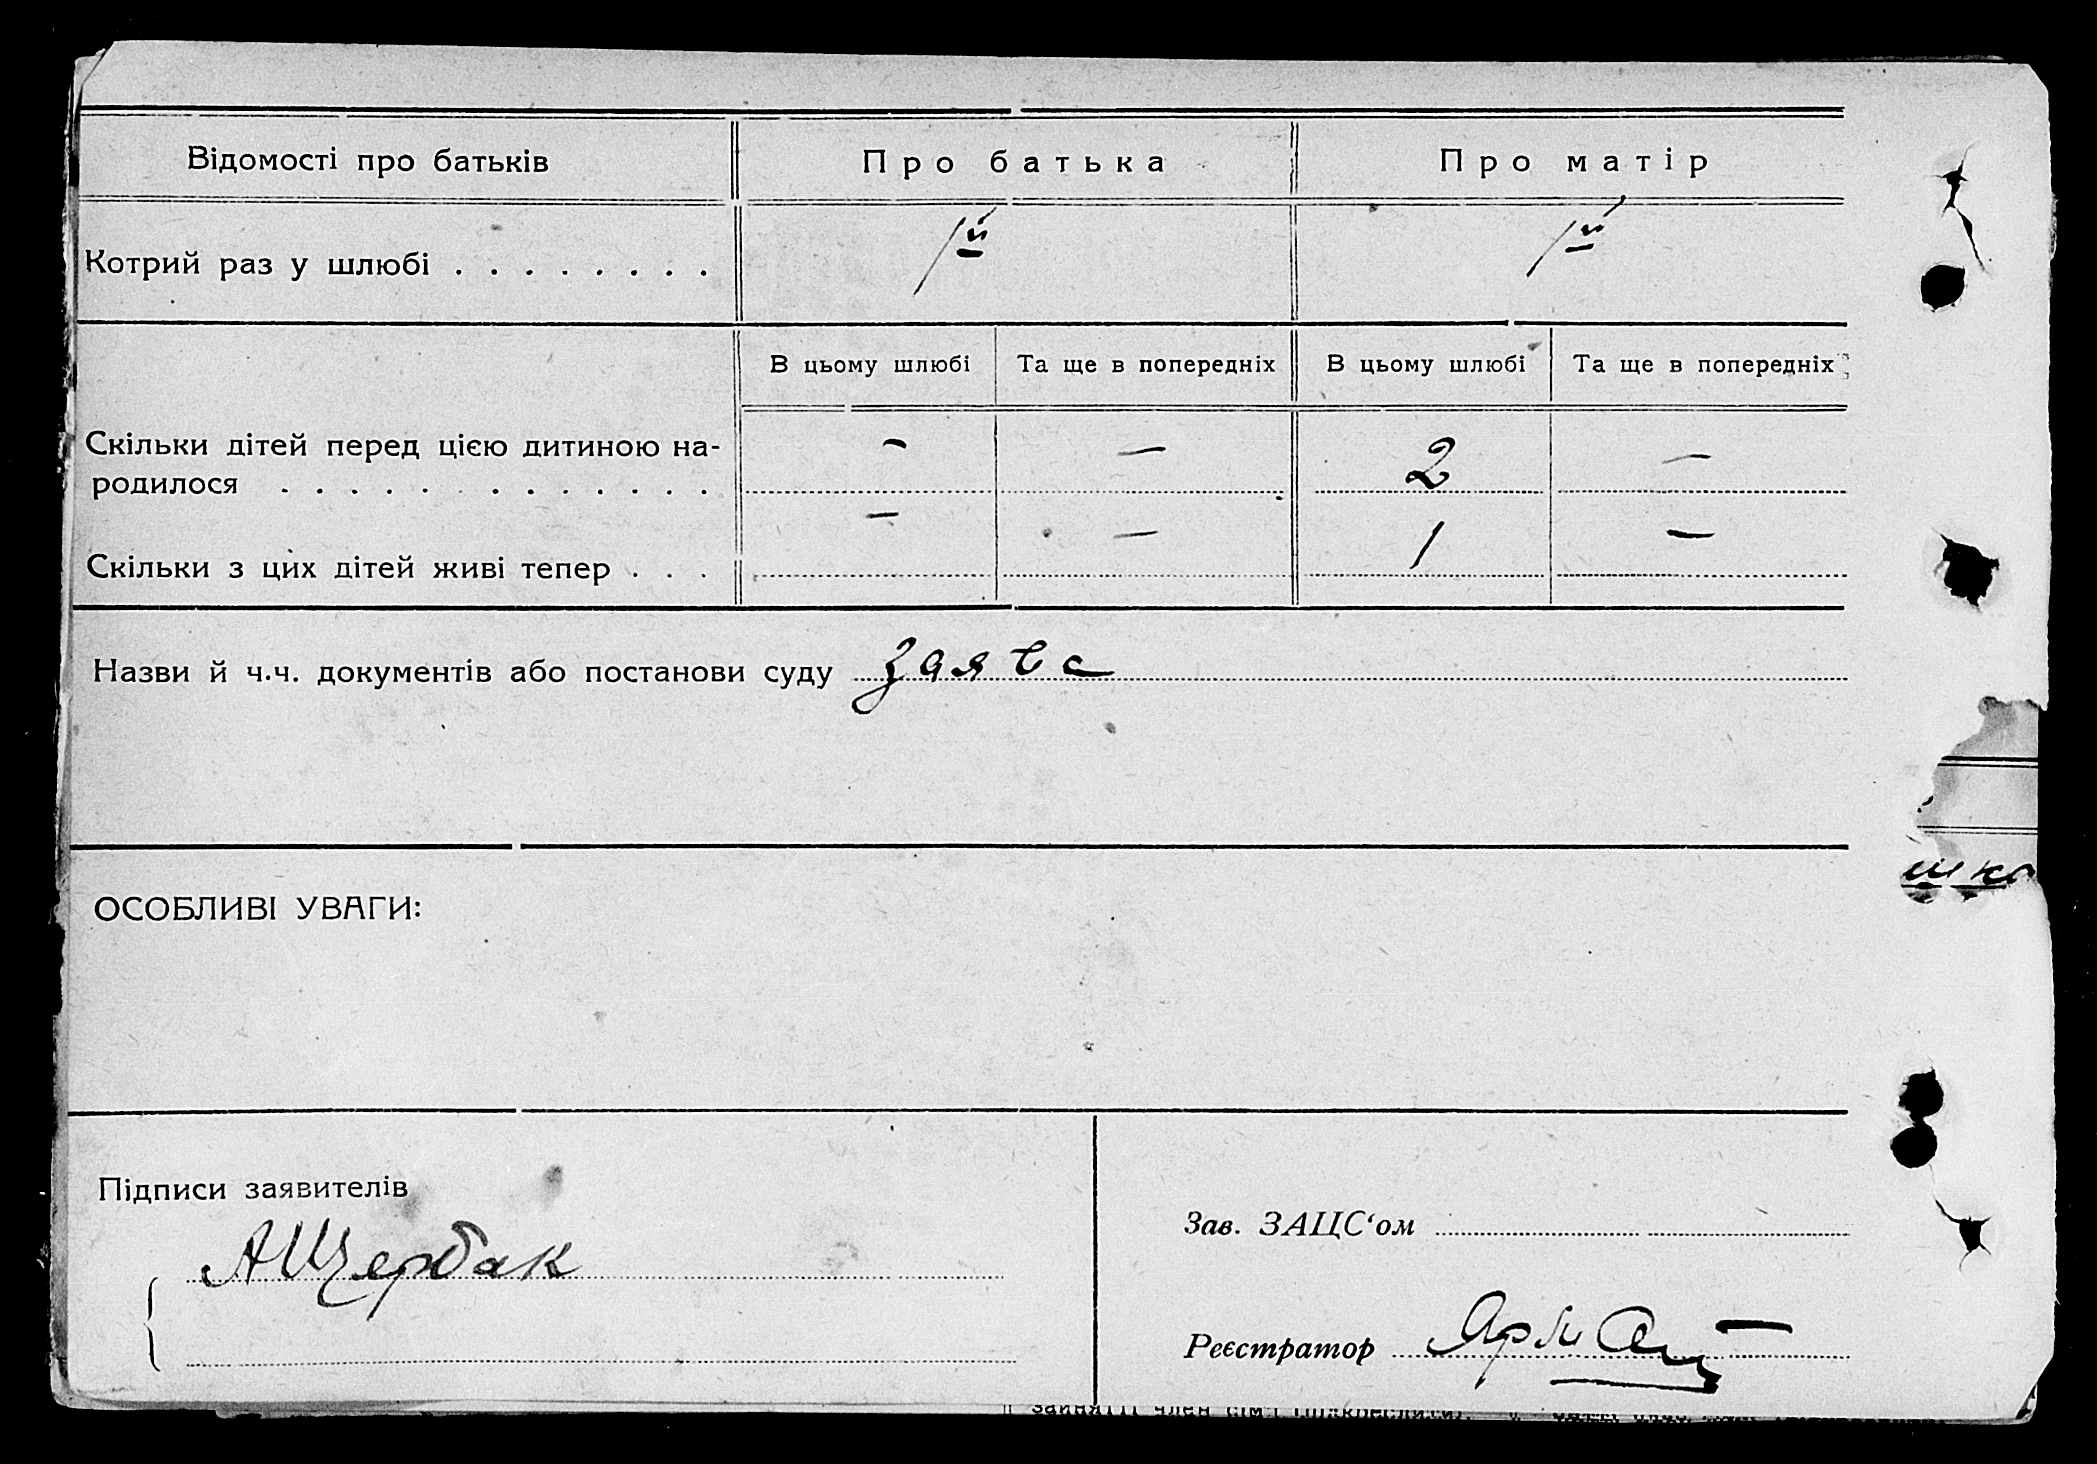 Відомості про батьків Про батька Про матір
Котрий раз у шлюбі . . . . . . . . 1й 1й
В цьому шлюбі Та ще в попередніх В цьому шлюбі Та ще в попередніх
Скільки дітей перед цією дитиною на- – — 2 —
родилося . . . . . . . . . . . . .
Скільки з цих дітей живі тепер . . . – — 1 —
Назви й ч.ч. документів або постанови суду заява
ОСОБЛИВІ УВАГИ:
Підписи заявителів
Зав. ЗАЦС‘ом
АЩербак
Реєстратор